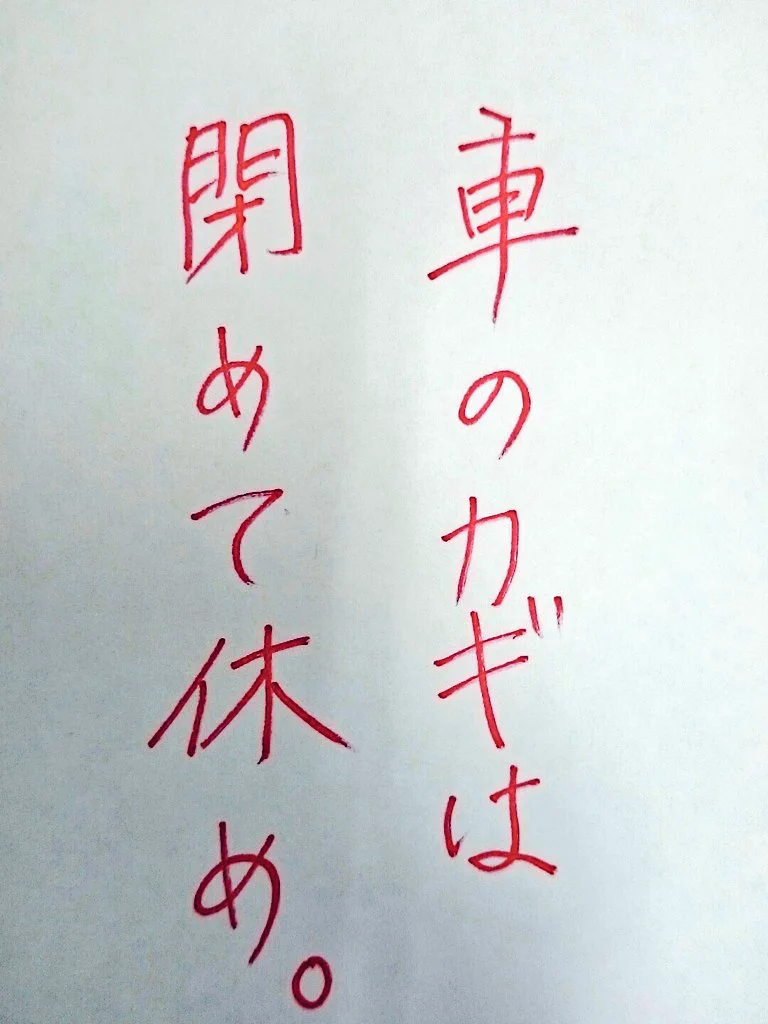 車のカギは
閉めて休め。